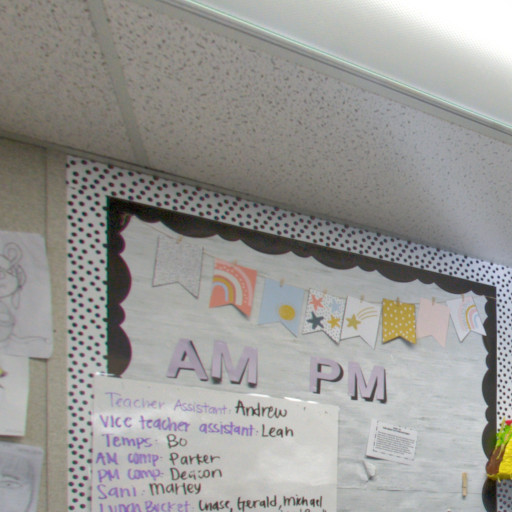 AM PM
Teacher Assistant: Andrew
Vice teacher assistant: Leah
Temps: Bo
AM comp: Parker
PM comp: Deacon
Sani: Marley
Lunch Bucket: Chase, Gerald, Michael